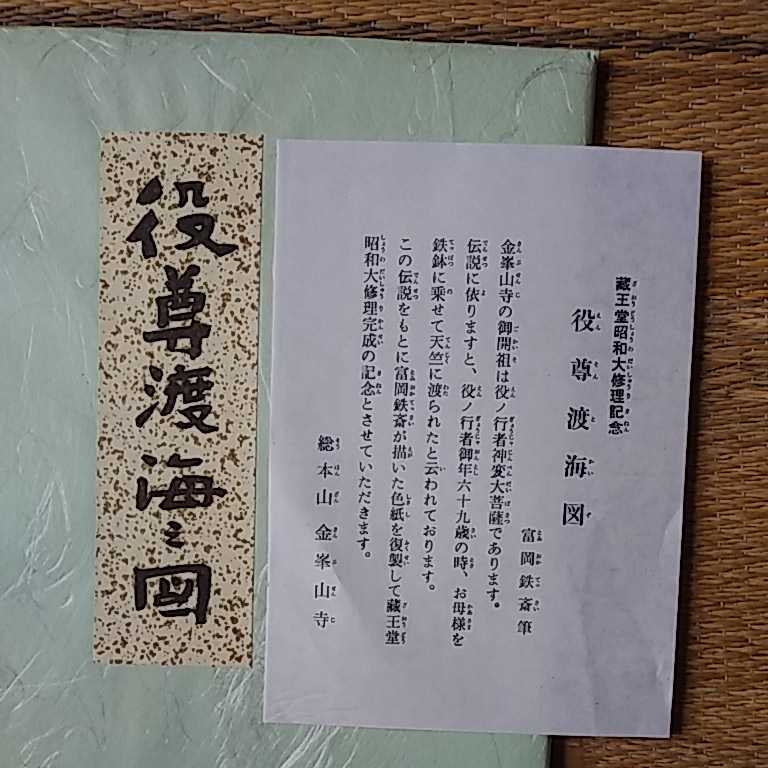 蔵王堂昭和大修理記念
役尊渡海図
富岡鉄斎筆
金峯山寺の御開祖は役ノ行者神変大菩薩であります。
伝説に依りますと、役ノ行者御年六十九歳の時、お母様を
鉄鉢に乗せて天竺に渡られたと云われております。
この伝説をもとに富岡鉄斎が描いた色紙を復製して蔵王堂
昭和大修理完成の記念とさせていただきます。
総本山金峯山寺
役尊渡海之図